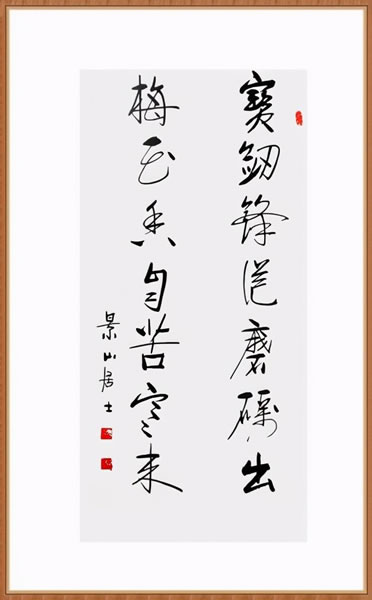 寶劒鋒從磨礪出
梅花香自苦寒来
景山居士